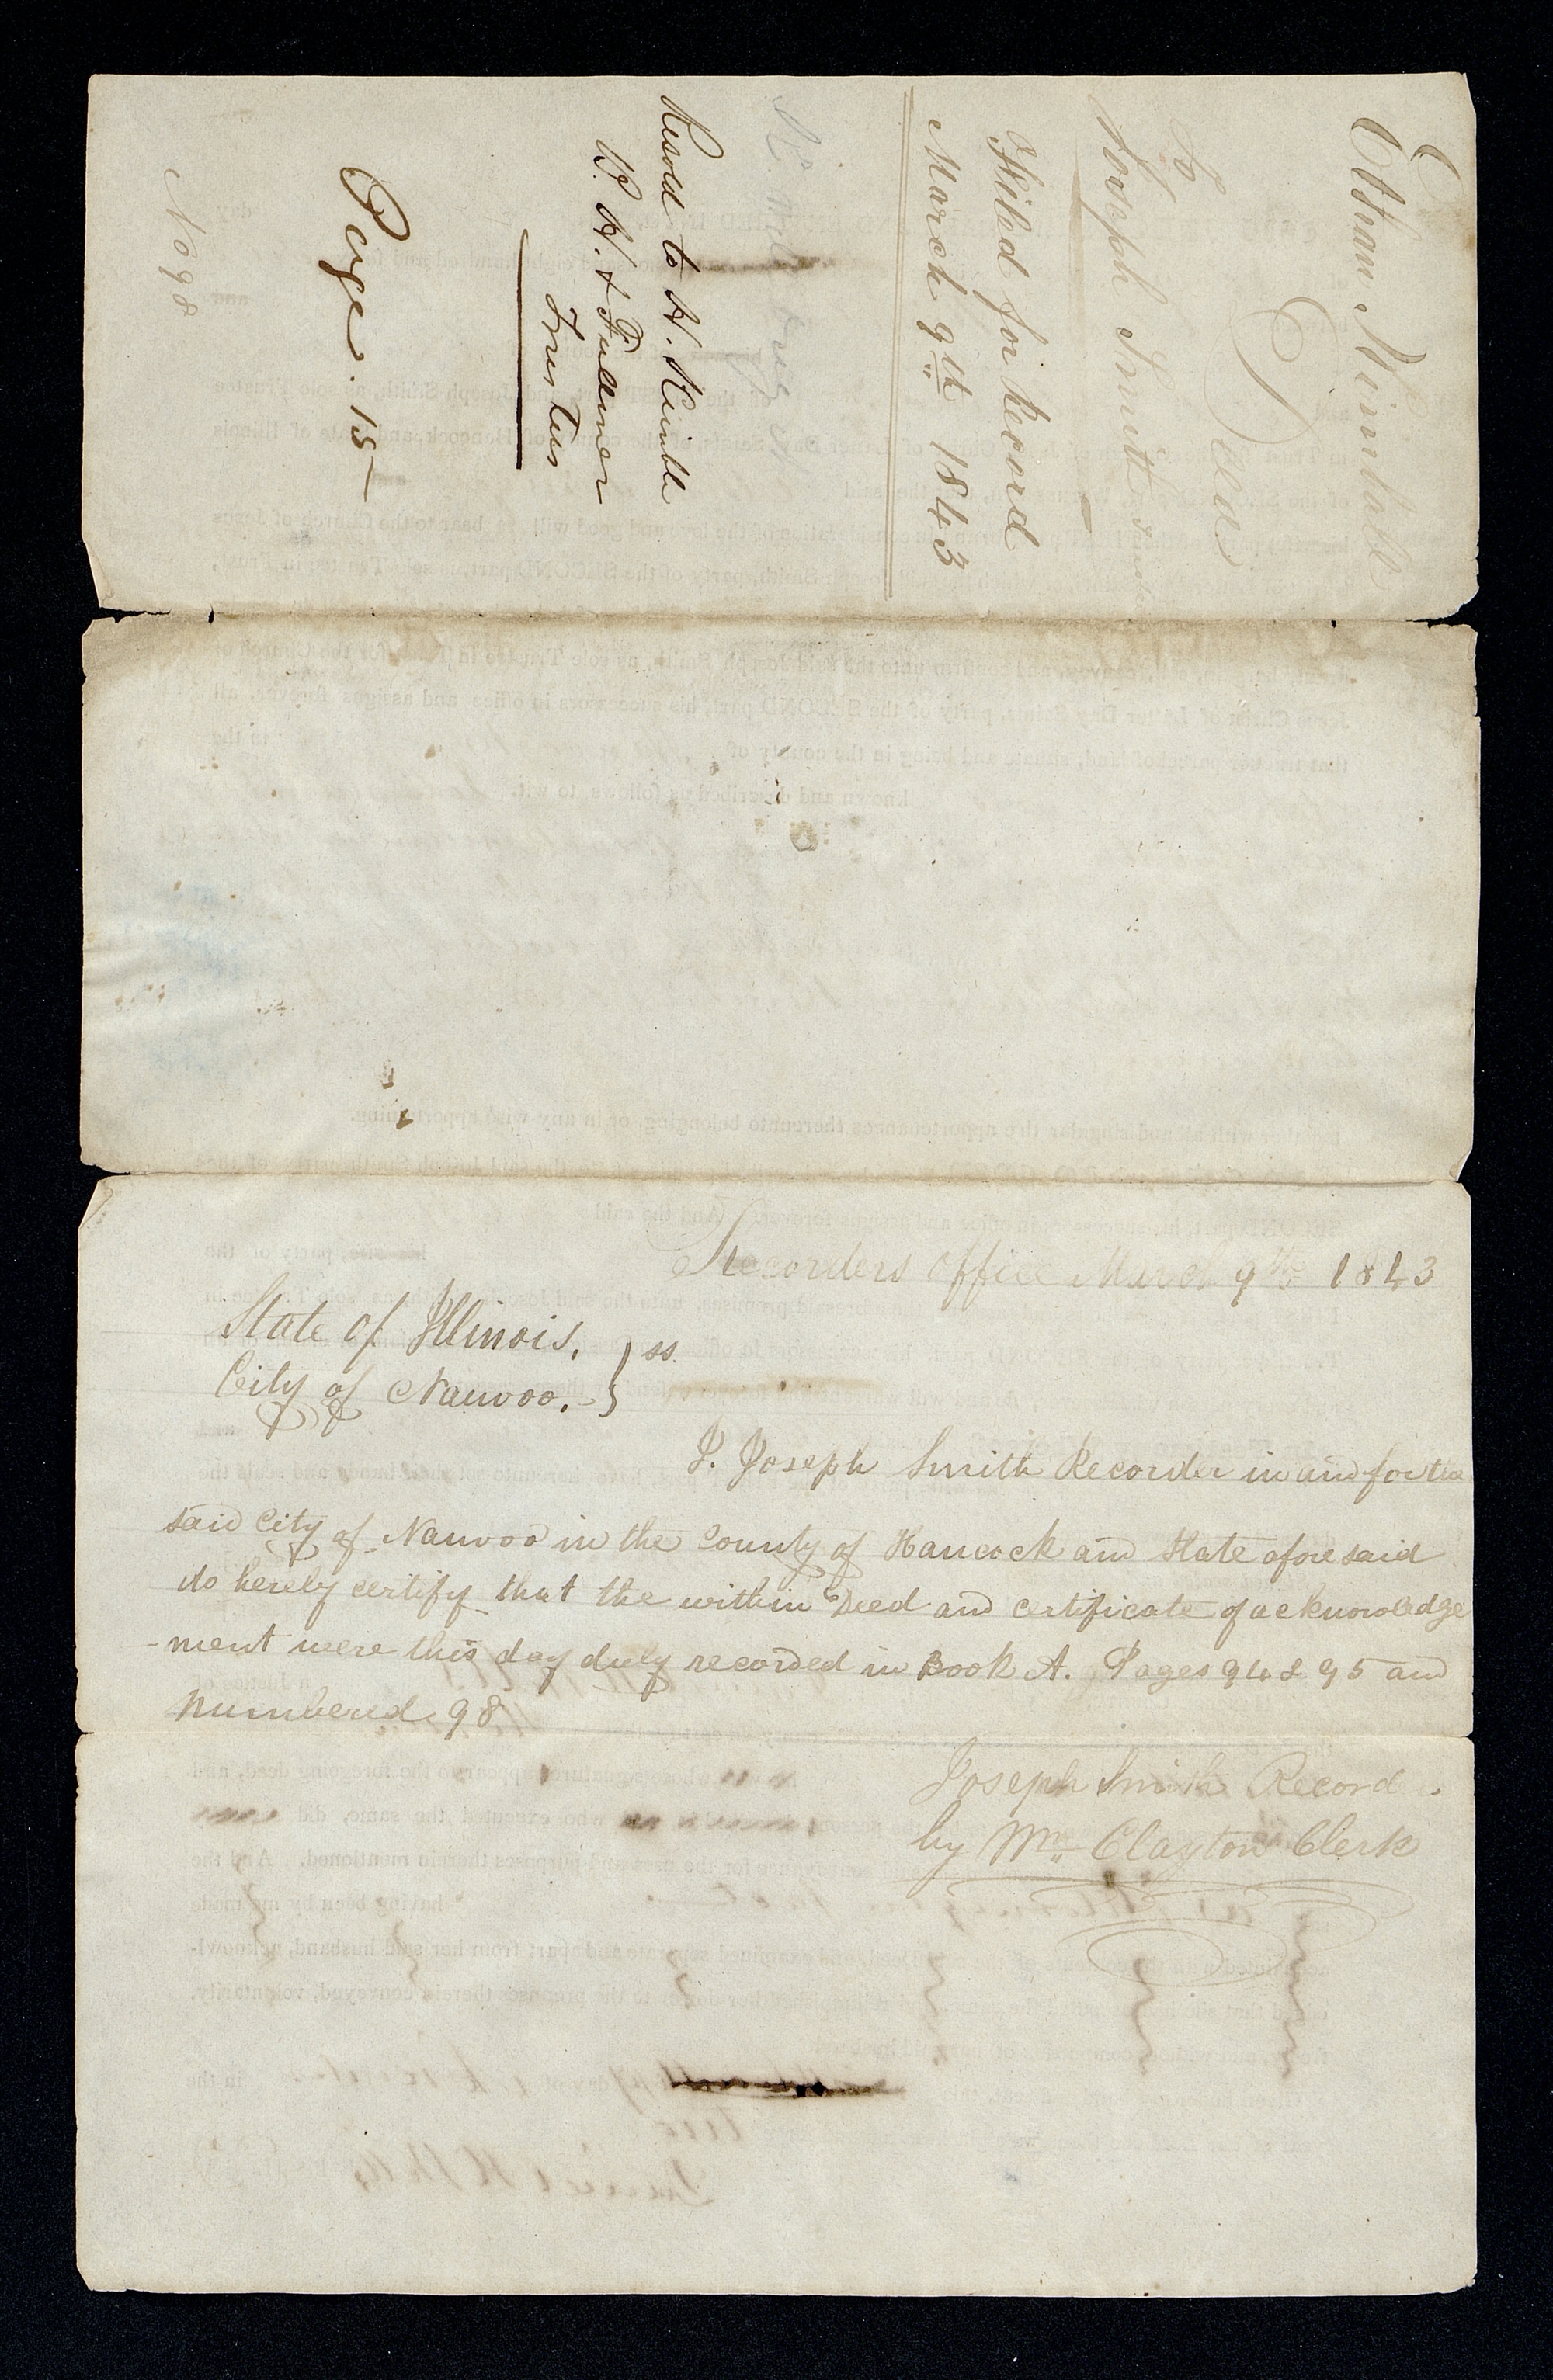 Ethan Kimball
To } Deed
Joseph Smith
Filed for Record
March 9th 1843
Resold to H. Kimble
W. H. & Fullmer
Trustees
Page. 15
No 98
Recorders Office March 9th 1843
State of Illinois, } ss.
City of Nauvoo. }
I. Joseph Smith Recorder in and for the
said City of Nauvoo in the County of Hancock and State aforesaid
do hereby certify that the within Deed and certificate of acknowledge
-ment were this day duly recorded in Book A. Pages 94 & 95 and
numbered 98
Joseph Smith Record
by Wm. Clayton Clerk